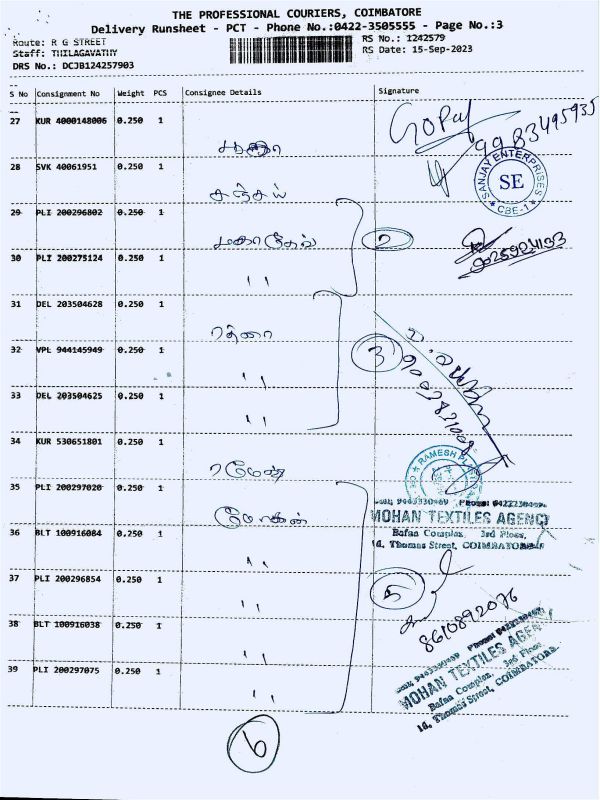 THE PROFESSIONAL COURIERS, COIMBATORE
Delivery Runsheet - PCT - Phone No.:0422-3505555 - Page No.:3
Route: R G STREET
RS No.: 1242579
Staff: THILAGAVATHY
RS Date: 15-Sep-2023
DRS No.: DCJB124257903
S No Consignment No Weight PCS Consignee Details Signature
27 KUR 4000148006 0.250 1
GOPAL
9983495935
28 SVK 40061951 0.250 1 சஞ்சய்
SANJAY ENTERPRISES
SE
CBE-1
29 PLI 200296802 0.250 1 மகாசேல்
2
30 PLI 200275124 0.250 1 ''
9025924133
31 DEL 203504628 0.250 1 ரத்னா
32 VPL 944145949 0.250 1 ''
3
33 DEL 203504625 0.250 1 ''
34 KUR 530651801 0.250 1 ரமேஷ்
RAMESH
35 PLI 200297020 0.250 1 மோகன்
MOHAN TEXTILES AGENCY
Bafna Complex, 3rd Floor,
1d, Thomas Street, COIMBATORE
36 BLT 100916084 0.250 1 ''
37 PLI 200296854 0.250 1 ''
5
8610892076
38 BLT 100916038 0.250 1 ''
39 PLI 200297075 0.250 1 ''
MOHAN TEXTILES AGENCY
Bafna Complex, 3rd Floor
1d, Thomas Street, COIMBATORE
6